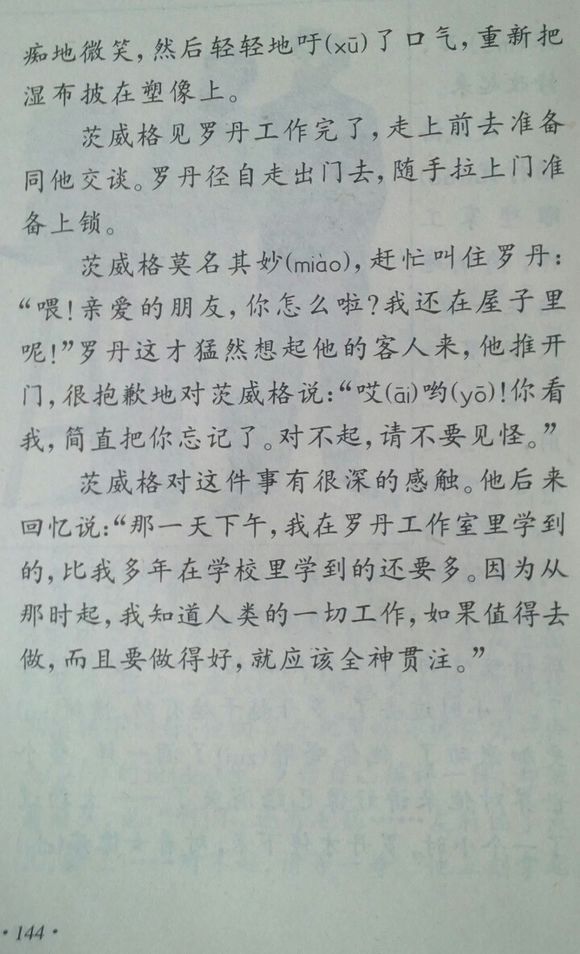 痴地微笑，然后轻轻地吁(xū)了口气，重新把
湿布披在塑像上。
茨威格见罗丹工作完了，走上前去准备
同他交谈。罗丹径自走出门去，随手拉上门准
备上锁。
茨威格莫名其妙(miào)，赶忙叫住罗丹：
“喂！亲爱的朋友，你怎么啦？我还在屋子里
呢！”罗丹这才猛然想起他的客人来，他推开
门，很抱歉地对茨威格说：“哎(āi)哟(yō)！你看
我，简直把你忘记了。对不起，请不要见怪。”
茨威格对这件事有很深的感触。他后来
回忆说：“那一天下午，我在罗丹工作室里学到
的，比我多年在学校里学到的还要多。因为从
那时起，我知道人类的一切工作，如果值得去
做，而且要做得好，就应该全神贯注。”
·144·